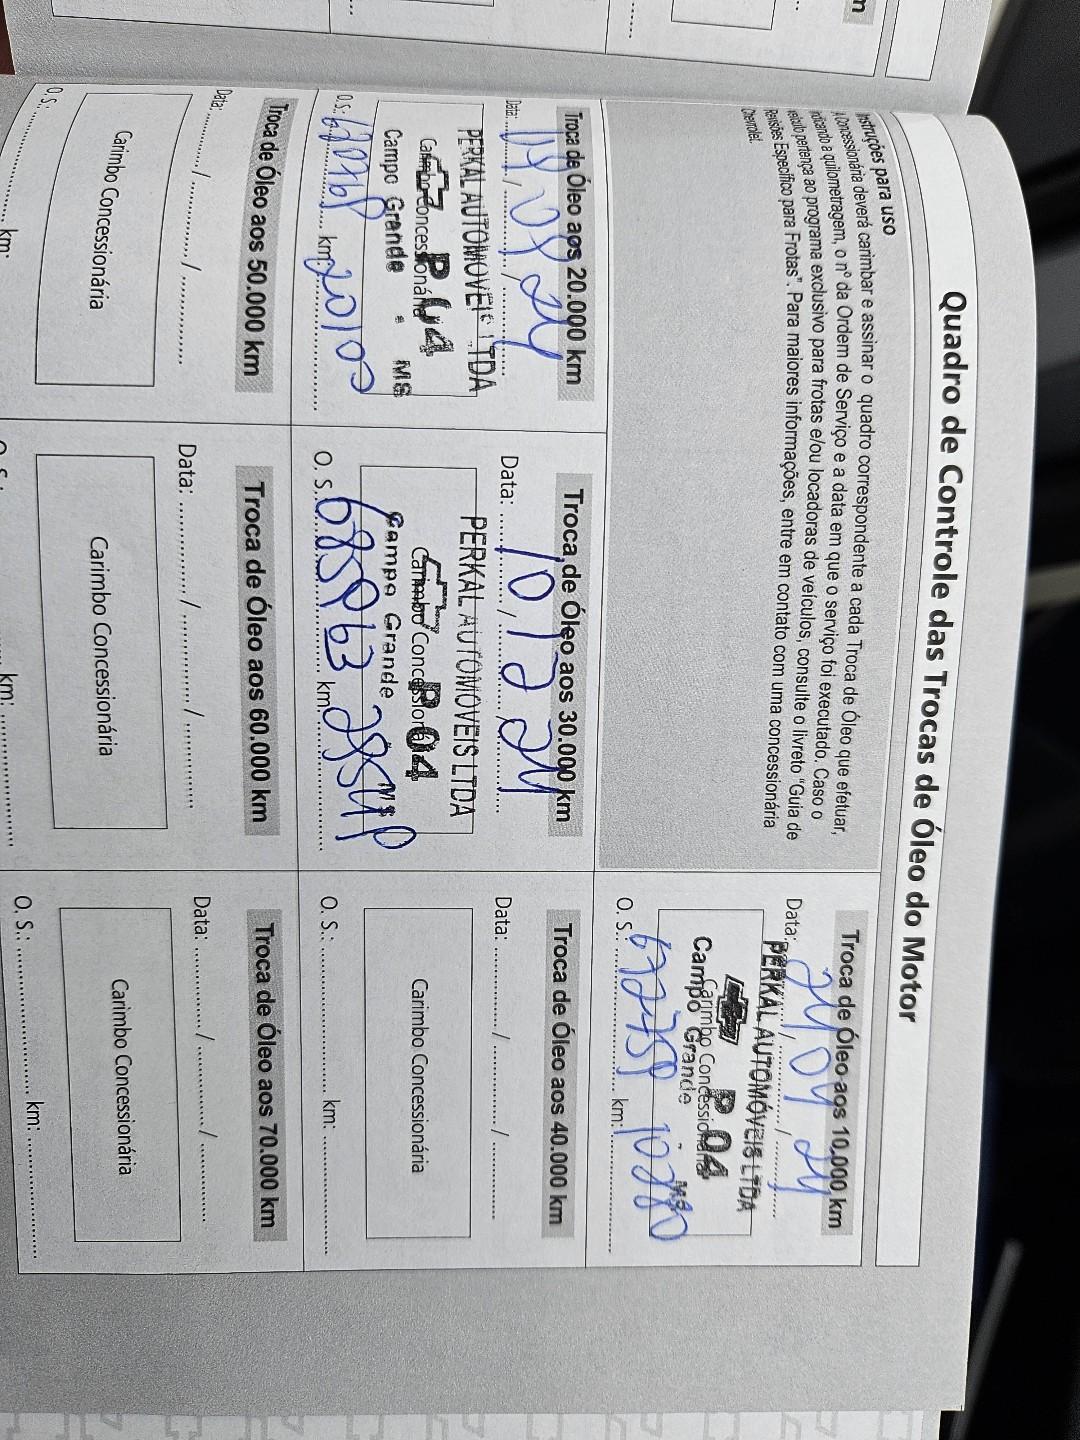 Quadro de Controle das Trocas de Óleo do Motor
Instruções para uso
A Concessionária deverá carimbar e assinar o quadro correspondente a cada Troca de Óleo que efetuar,
indicando a quilometragem, o nº da Ordem de Serviço e a data em que o serviço foi executado. Caso o
veículo pertença ao programa exclusivo para frotas e/ou locadoras de veículos, consulte o livreto "Guia de
Revisões Específico para Frotas". Para maiores informações, entre em contato com uma concessionária
Chevrolet.
Troca de Óleo aos 10.000 km
Data: 24/04/24
PERKAL AUTOMÓVEIS LTDA
P 04
Carimbo Concessionária
Campo Grande - MS
O. S.: km:
Troca de Óleo aos 20.000 km
Data: 24
PERKAL AUTOMOVEIS LTDA
P 04
Carimbo Concessionária
Campo Grande - MS
O. S.: km: 20100
Troca de Óleo aos 30.000 km
Data: 10 12 24
PERKAL AUTOMOVEIS LTDA
P 04
Carimbo Concessionária
Campo Grande MS
O. S.: km:
Troca de Óleo aos 40.000 km
Data: ........../........../..........
Carimbo Concessionária
O. S.: .................... km: ....................
Troca de Óleo aos 50.000 km
Data: ........../........../..........
Carimbo Concessionária
O. S.: .................... km:
Troca de Óleo aos 60.000 km
Data: ........../........../..........
Carimbo Concessionária
km: ....................
Troca de Óleo aos 70.000 km
Data: ........../........../..........
Carimbo Concessionária
O. S.: .................... km: ....................